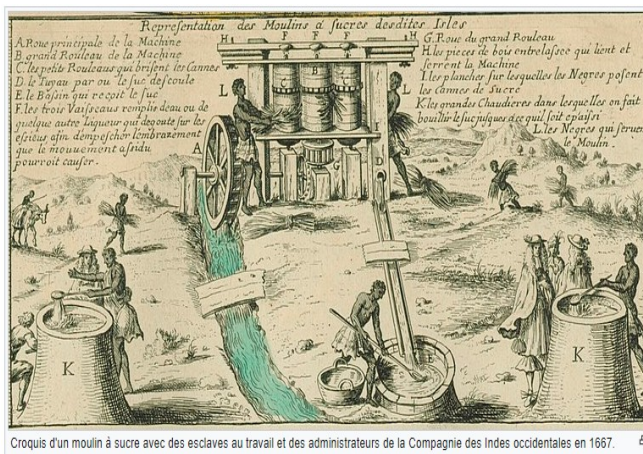 Representation des Moulins a sucres desdites Isles
A.Roue principale de la Machine
B.grand Rouleau de la Machine
C.les petits Rouleaus qui brisent les Cannes
D.le Tuyau par ou le suc descoule
E.le Bassin qui reçoit le suc
F.les trois Vaisseaus remplis deau ou de
quelque autre Liqueur qui degoute sur les
essieus afin dempescher lembrazement
que le mouvement assidu
pourroit causer.
G.Roue du grand Rouleau
H.les pieces de bois entrelassee qui lient et
serrent la Machine
I.les planches sur lesquelles les Negres posent
les cannes de Sucre
K.les grandes Chaudieres dans lesquelles on fait
bouillir le suc jusques a ce quil soit epaissi
L.les Negres qui servent
le Moulin.
H F F F H
B
L L
A
G
D
K K
Croquis d'un moulin à sucre avec des esclaves au travail et des administrateurs de la Compagnie des Indes occidentales en 1667.